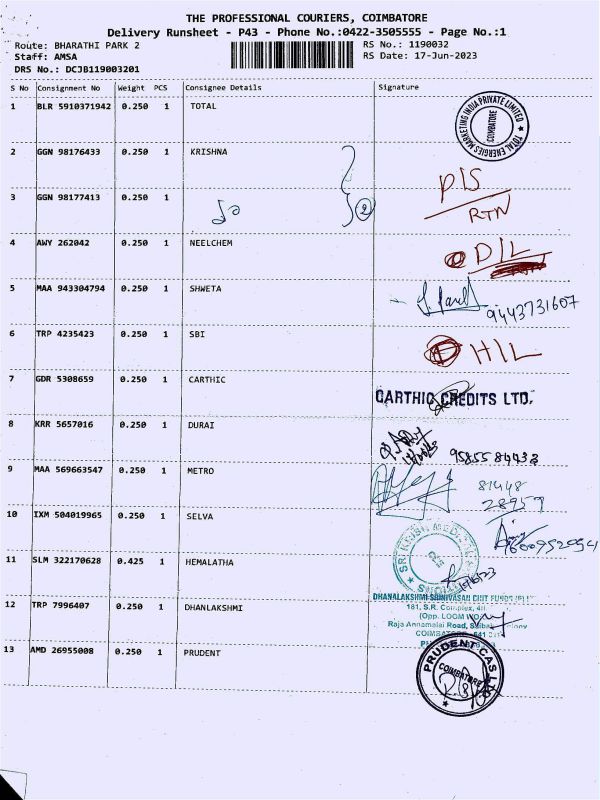 THE PROFESSIONAL COURIERS, COIMBATORE
Delivery Runsheet - P43 - Phone No.:0422-3505555 - Page No.:1
Route: BHARATHI PARK 2 RS No.: 1190032
Staff: AMSA RS Date: 17-Jun-2023
DRS No.: DCJB119003201
S No Consignment No Weight PCS Consignee Details Signature
1 BLR 5910371942 0.250 1 TOTAL
TOTAL ENERGIES MARKETING INDIA PRIVATE LIMITED
COIMBATORE
2 GGN 98176433 0.250 1 KRISHNA
3 GGN 98177413 0.250 1
2
P/S
RTN
4 AWY 262042 0.250 1 NEELCHEM
D/L
5 MAA 943304794 0.250 1 SHWETA
9443731607
6 TRP 4235423 0.250 1 SBI
H/L
7 GDR 5308659 0.250 1 CARTHIC
CARTHIC CREDITS LTD.
8 KRR 5657016 0.250 1 DURAI
9585584433
9 MAA 569663547 0.250 1 METRO
81448
28957
10 IXM 504019965 0.250 1 SELVA
11 SLM 322170628 0.425 1 HEMALATHA
12 TRP 7996407 0.250 1 DHANLAKSHMI
DHANALAKSHMI SRINIVASAN CHIT FUNDS
181, S.R. Complex,
(Opp. LOOM
Raja Annamalai Road,
COIMBATORE
13 AMD 26955008 0.250 1 PRUDENT
PRUDENT CAS LTD
COIMBATORE